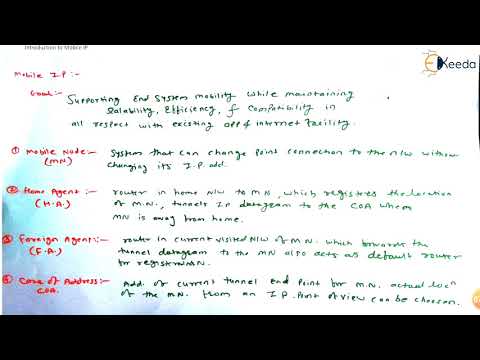 Introduction to Mobile IP
Keeda
Mobile I.P :-
Goal:- Supporting End System mobility while maintaining
Scalability, Efficiency, & Compatibility in
all respect with existing app & internet facility.
① Mobile Node:- System that can change point connection to the N/w without
(MN) changing its I.P. add.
② Home Agent:- router in home N/w to MN, which registers the location
(H.A.) of M.N., tunnels IP datagram to the COA when
MN is away from home.
③ Foreign Agent:- router in current visited N/w of M.N. which forwards the
(F.A.) tunnel datagram to the MN also acts as default router
for registration.
④ Care of Address:- Add. of current tunnel End point for M.N. actual locn
COA. of the M.N. from an I.P. point of view can be choosen.